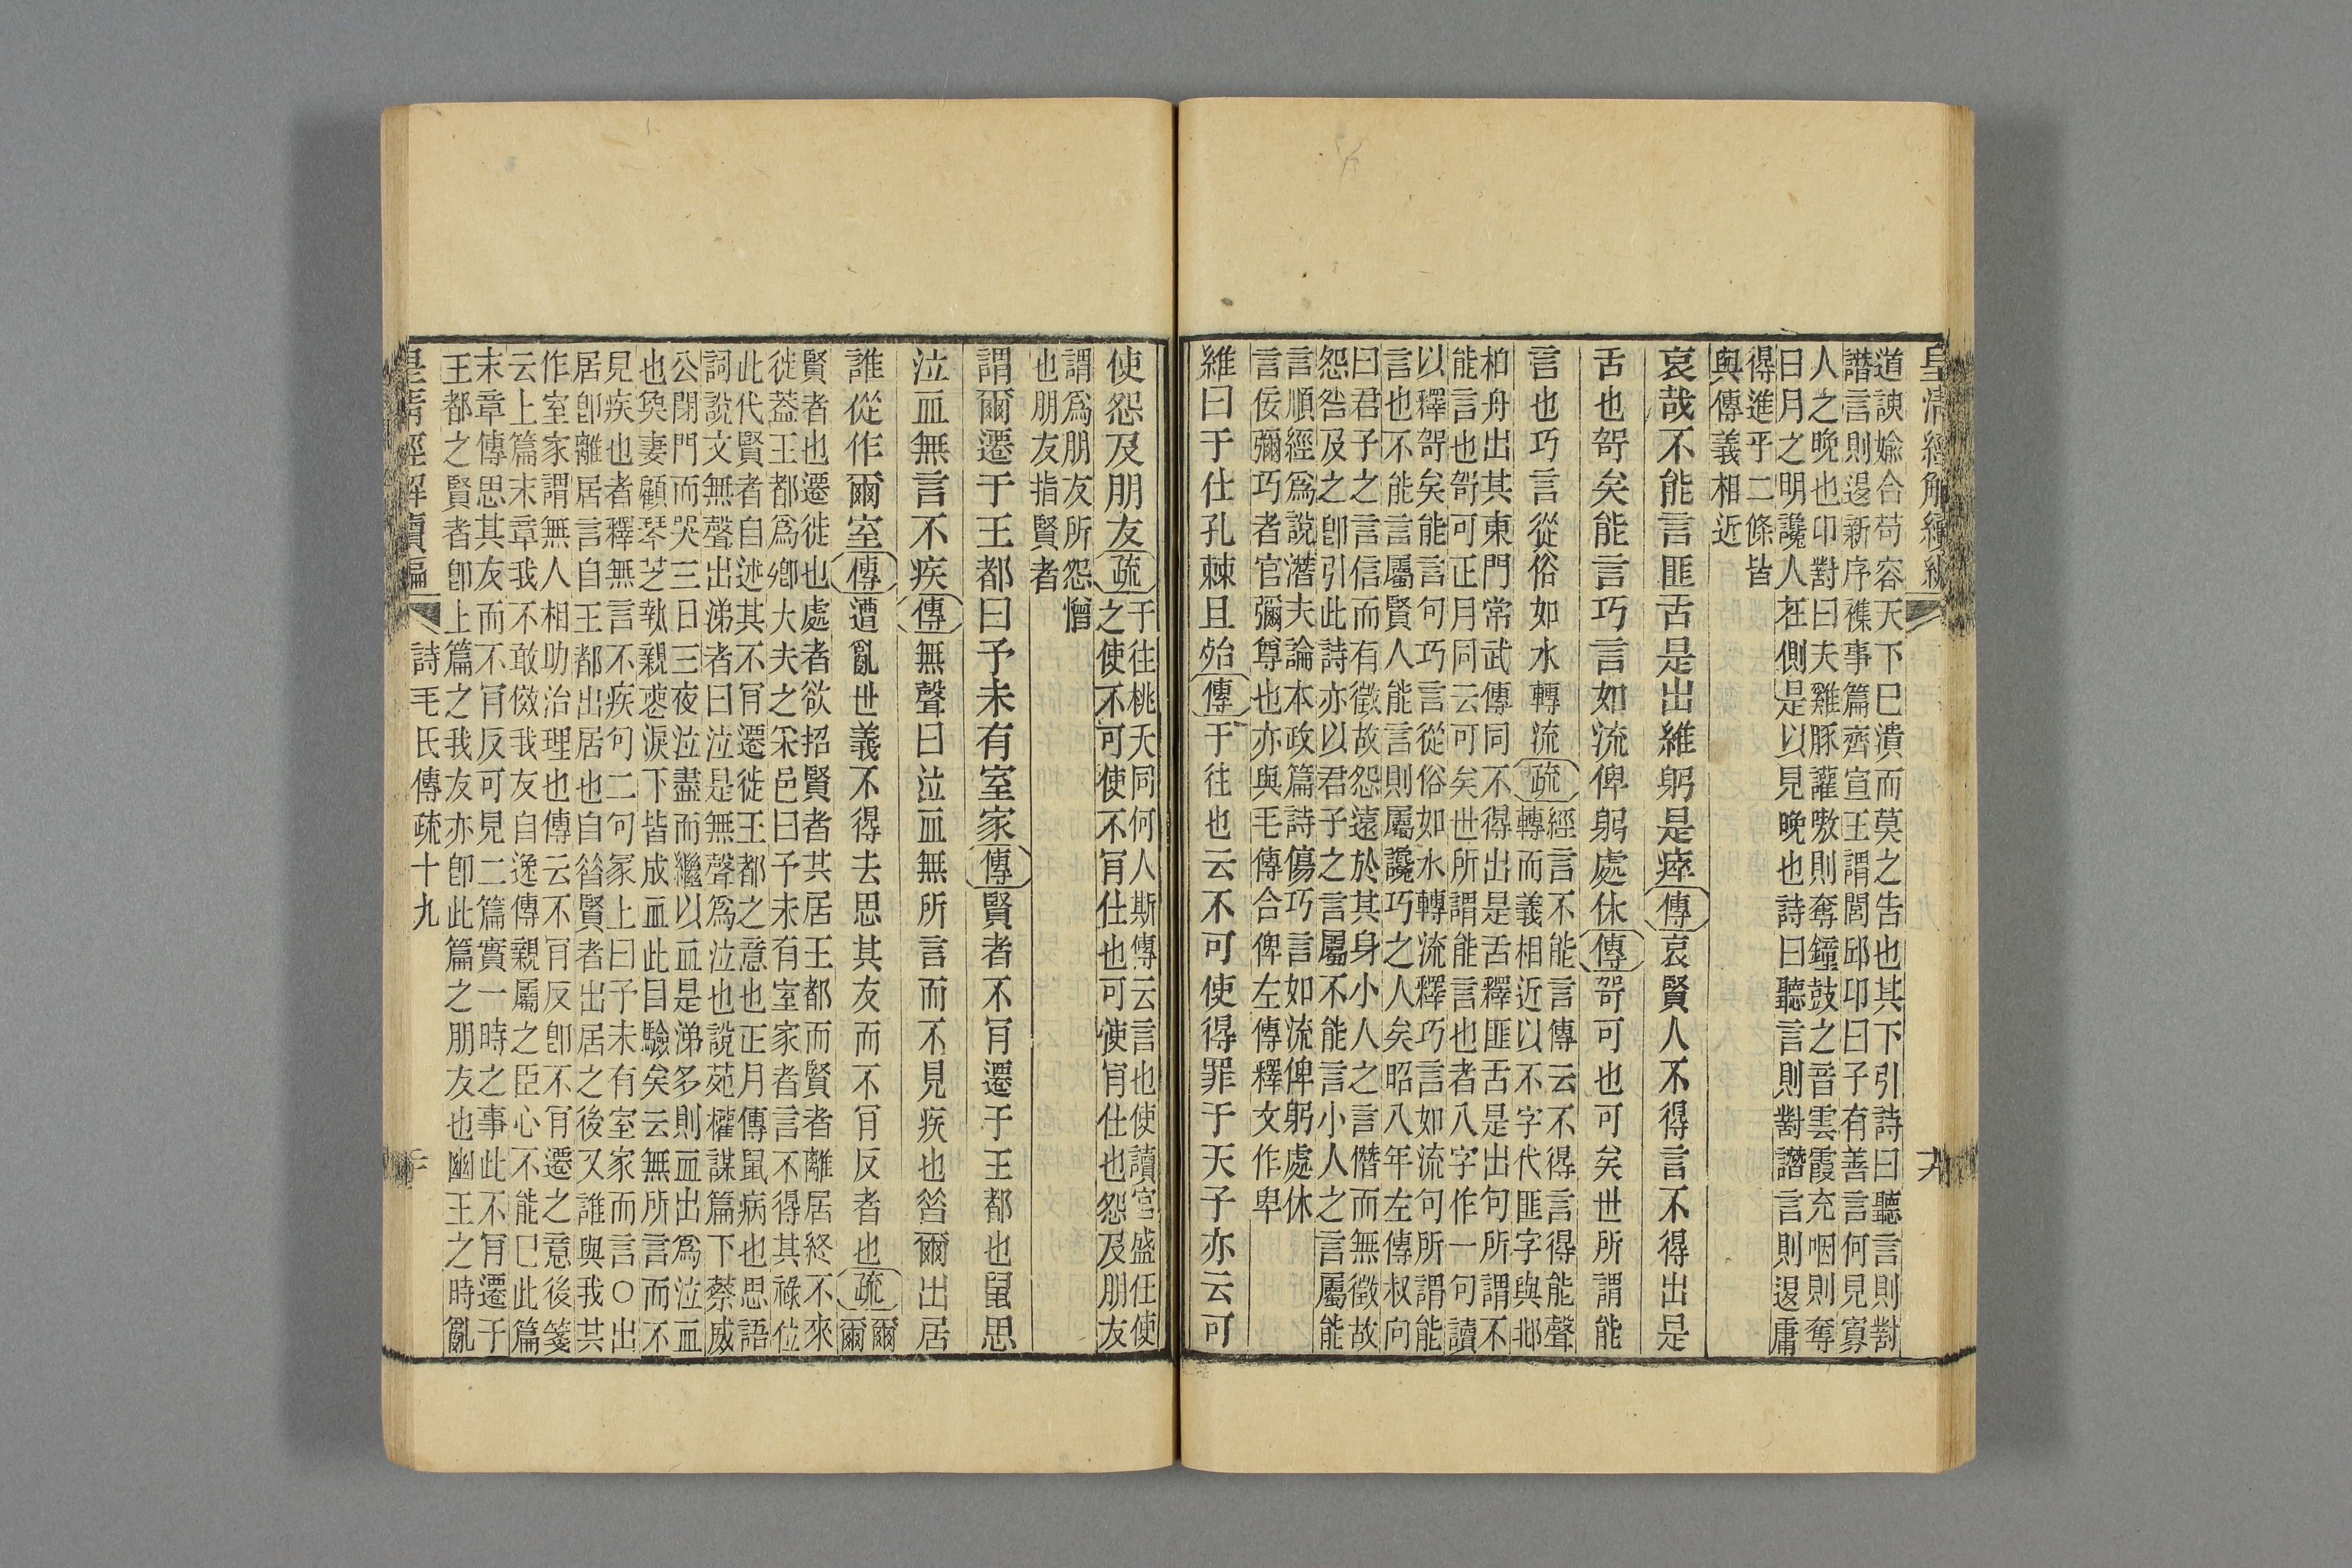 皇清經解續編
道諛婾合苟容天下巳潰而莫之告也其下引詩曰聽言則對
譖言則退新序襍事篇齊宣王謂閭邱卬曰子有善言何見寡
人之晚也卬對曰夫雞豚讙嗷則奪鐘鼓之音雲霞充咽則奪
日月之明讒人在側是以見晚也詩曰聽言則對譖言則退庸
得進乎二條皆
與傳義相近
哀哉不能言匪舌是出維躬是瘁傳哀賢人不得言不得出是
舌也哿矣能言巧言如流俾躬處休傳哿可也可矣世所謂能
言也巧言從俗如水轉流疏經言不能言傳云不得言得能聲
轉而義相近以不字代匪字與邶
柏舟出其東門常武傳同不得出是舌釋匪舌是出句所謂不
能言也哿可正月同云可矣世所謂能言也者八字作一句讀
以釋哿矣能言句巧言從俗如水轉流釋巧言如流句所謂能
言也不能言屬賢人能言則屬讒巧之人矣昭八年左傳叔向
曰君子之言信而有徵故怨遠於其身小人之言僭而無徵故
怨咎及之卽引此詩亦以君子之言屬不能言小人之言屬能
言順經爲說潛夫論本政篇詩傷巧言如流俾躬處休
言佞彌巧者官彌尊也亦與毛傳合俾左傳釋文作卑
維曰于仕孔棘且殆傳于往也云不可使得罪于天子亦云可
使怨及朋友疏于往桃夭同何人斯傳云言也使讀官盛任使
之使不可使不肎仕也可使肎仕也怨及朋友
謂爲朋友所怨憎
也朋友指賢者
謂爾遷于王都曰予未有室家傳賢者不肎遷于王都也鼠思
泣血無言不疾傳無聲曰泣血無所言而不見疾也昝爾出居
誰從作爾室傳遭亂世義不得去思其友而不肎反者也疏爾爾
賢者也遷徙也處者欲招賢者共居王都而賢者離居終不來
徙蓋王都爲鄕大夫之采邑曰予未有室家者言不得其祿位
此代賢者自述其不肎遷徙王都之意也正月傳鼠病也思語
詞說文無聲出涕者曰泣是無聲爲泣也說苑權謀篇下蔡威
公閉門而哭三日三夜泣盡而繼以血是涕多則血出爲泣血
也奐妻顧琴芝執親喪淚下皆成血此目驗矣云無所言而不
見疾也者釋無言不疾句二句冡上曰予未有室家而言○出
居卽離居言自王都出居也自昝賢者出居之後又誰與我共
作室家謂無人相助治理也傳云不肎反卽不肎遷之意後箋
云上篇末章我不敢傚我友自逸傳親屬之臣心不能巳此篇
末章傳思其友而不肎反可見二篇實一時之事此不肎遷于
王都之賢者卽上篇之我友亦卽此篇之朋友也幽王之時亂
皇清經解續編
詩毛氏傳疏十九